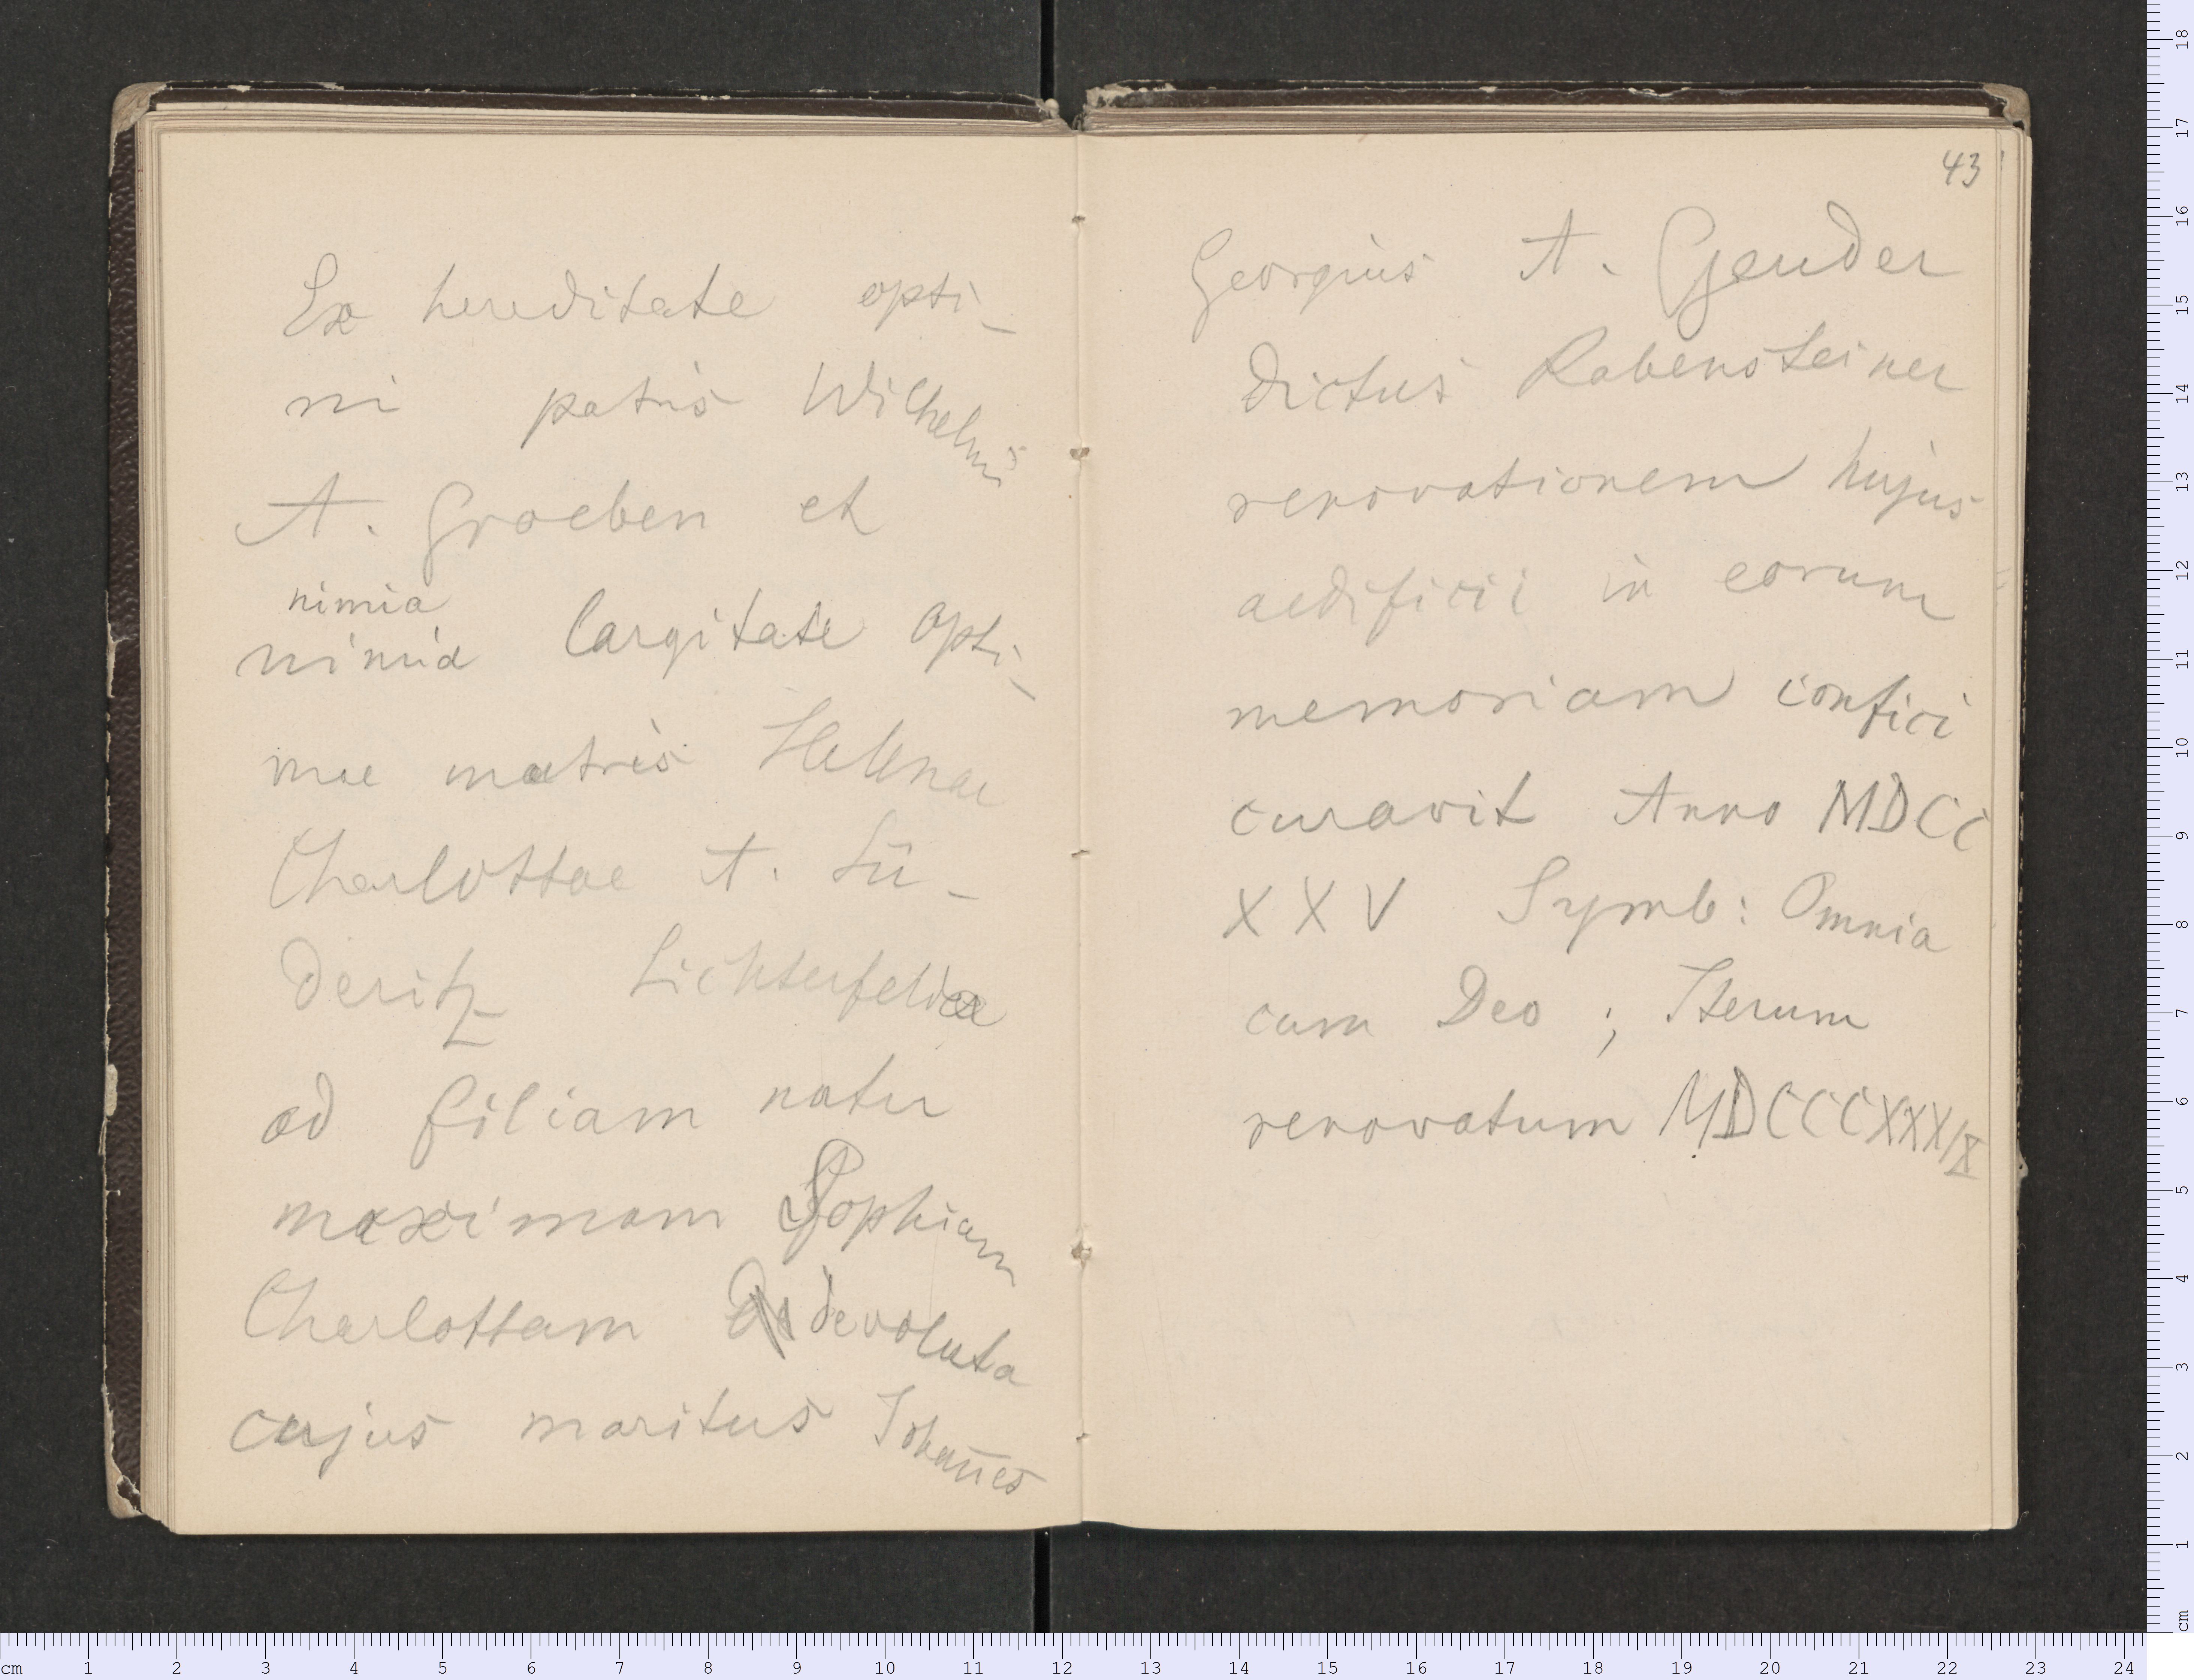 Ex hereditate opti-
mi patris Wilhelmi
A. Groeben et
nimia
nimia largitate opti-
mae matris Helenae
Charlottae A. Lü-
deritz Lichterfeldae
ad filiam natu
maximam Sophiam
Charlottam devoluta
cujus maritus Johan̄es
43
Georgius A. Geuder
dictus Rabensteiner
renovationem hujus
aedificii in eorum
memoriam confici
curavit Anno MDCC
XXV Symb: Omnia
cum Deo ; Iterum
renovatum MDCCCXXXIX